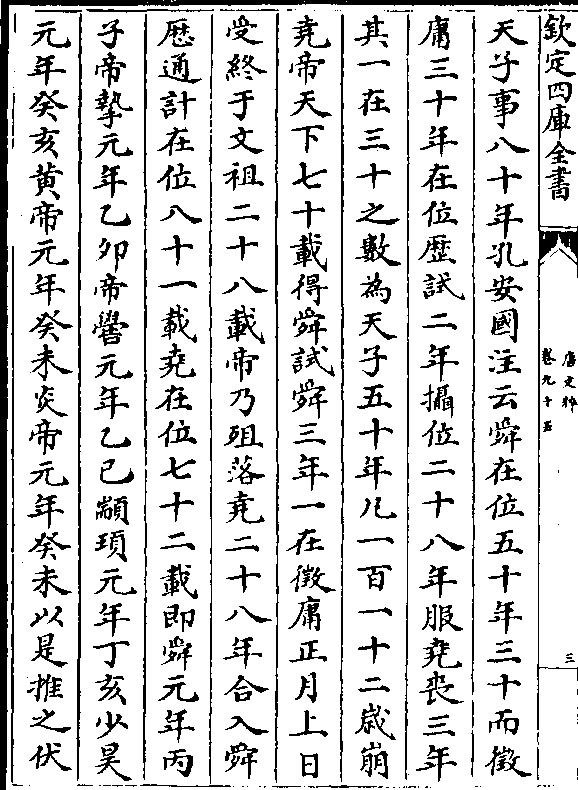 欽定四庫全書
唐文粹
卷九十五
三
天子事八十年孔安國注云舜在位五十年三十而徵
庸三十年在位歷試二年攝位二十八年服堯喪三年
其一在三十之數為天子五十年凡一百一十二歲崩
堯帝天下七十載得舜試舜三年一在徵庸正月上日
受終于文祖二十八載帝乃殂落堯二十八年合入舜
歷通計在位八十一載堯在位七十二載即舜元年丙
子帝摯元年乙卯帝嚳元年乙巳顓頊元年丁亥少昊
元年癸亥黃帝元年癸未炎帝元年癸未以是推之伏